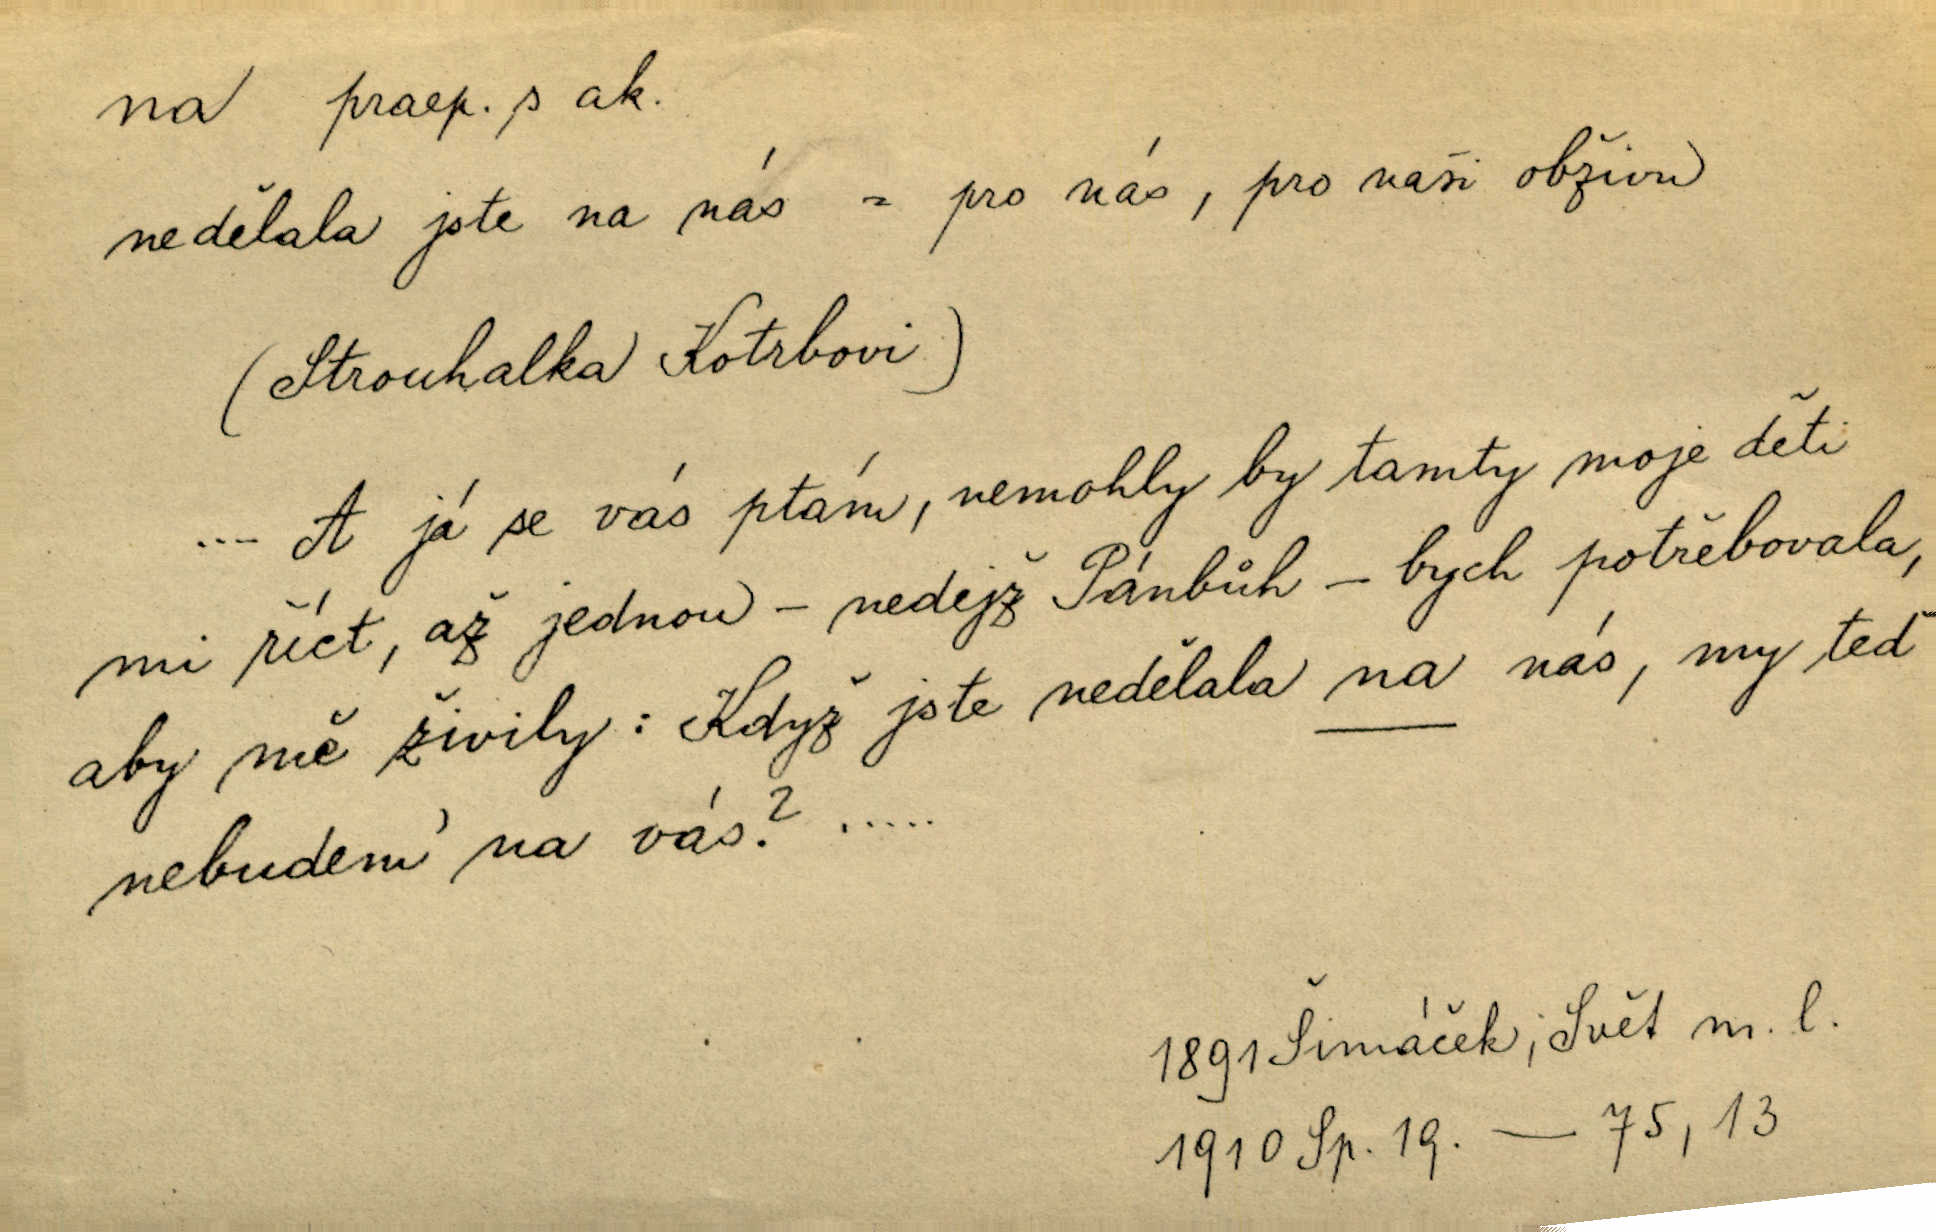 na praep. s ak.
nedělala jste na nás = pro nás, pro naši obživu
(Strouhalka Kotrbovi)
... A já se vás ptám, nemohly by tamty moje děti
mi říct, až jednou - nedejž Pánbůh - bych potřebovala,
aby mě živily: Když jste nedělala na nás, my teď
nebudem' na vás? .....
1891 Šimáček, Svět m. l.
1910 Sp. 19. — 75, 13